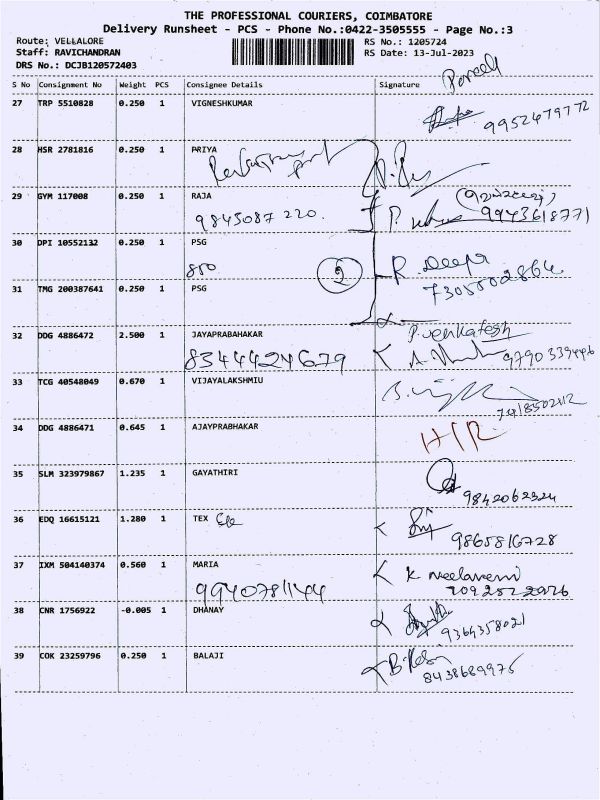 THE PROFESSIONAL COURIERS, COIMBATORE
Delivery Runsheet - PCS - Phone No.:0422-3505555 - Page No.:3
Route: VELLALORE RS No.: 1205724
Staff: RAVICHANDRAN RS Date: 13-Jul-2023
DRS No.: DCJB120572403
Parcel
S No Consignment No Weight PCS Consignee Details Signature
27 TRP 5510828 0.250 1 VIGNESHKUMAR
9952479772
28 HSR 2781816 0.250 1 PRIYA
29 GYM 117008 0.250 1 RAJA
9845087 220. 9943618771
30 DPI 10552132 0.250 1 PSG
2 R. Deepa
7305002864
31 TMG 200387641 0.250 1 PSG
P. Venkatesh
32 DDG 4886472 2.500 1 JAYAPRABAHAKAR
8344424679 9790339496
33 TCG 40548049 0.670 1 VIJAYALAKSHMIU
7418502112
34 DDG 4886471 0.645 1 AJAYPRABHAKAR
35 SLM 323979867 1.235 1 GAYATHIRI
9842062324
36 EDQ 16615121 1.280 1 TEX
9865816728
37 IXM 504140374 0.560 1 MARIA
9940781144 K Neelaveni
38 CNR 1756922 -0.005 1 DHANAY
9364358021
39 COK 23259796 0.250 1 BALAJI
8438689975